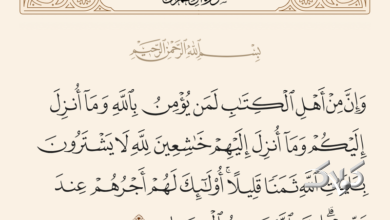 بِسْمِ ٱللَّهِ ٱلرَّحْمَٰنِ ٱلرَّحِيمِ
وَإِنَّ مِنْ أَهْلِ ٱلْكِتَٰبِ لَمَن يُؤْمِنُ بِٱللَّهِ وَمَآ أُنزِلَ
إِلَيْكُمْ وَمَآ أُنزِلَ إِلَيْهِمْ خَٰشِعِينَ لِلَّهِ لَا يَشْتَرُونَ
ثَمَنًا قَلِيلًا ۗ أُو۟لَٰٓئِكَ لَهُمْ أَجْرُهُمْ عِندَ